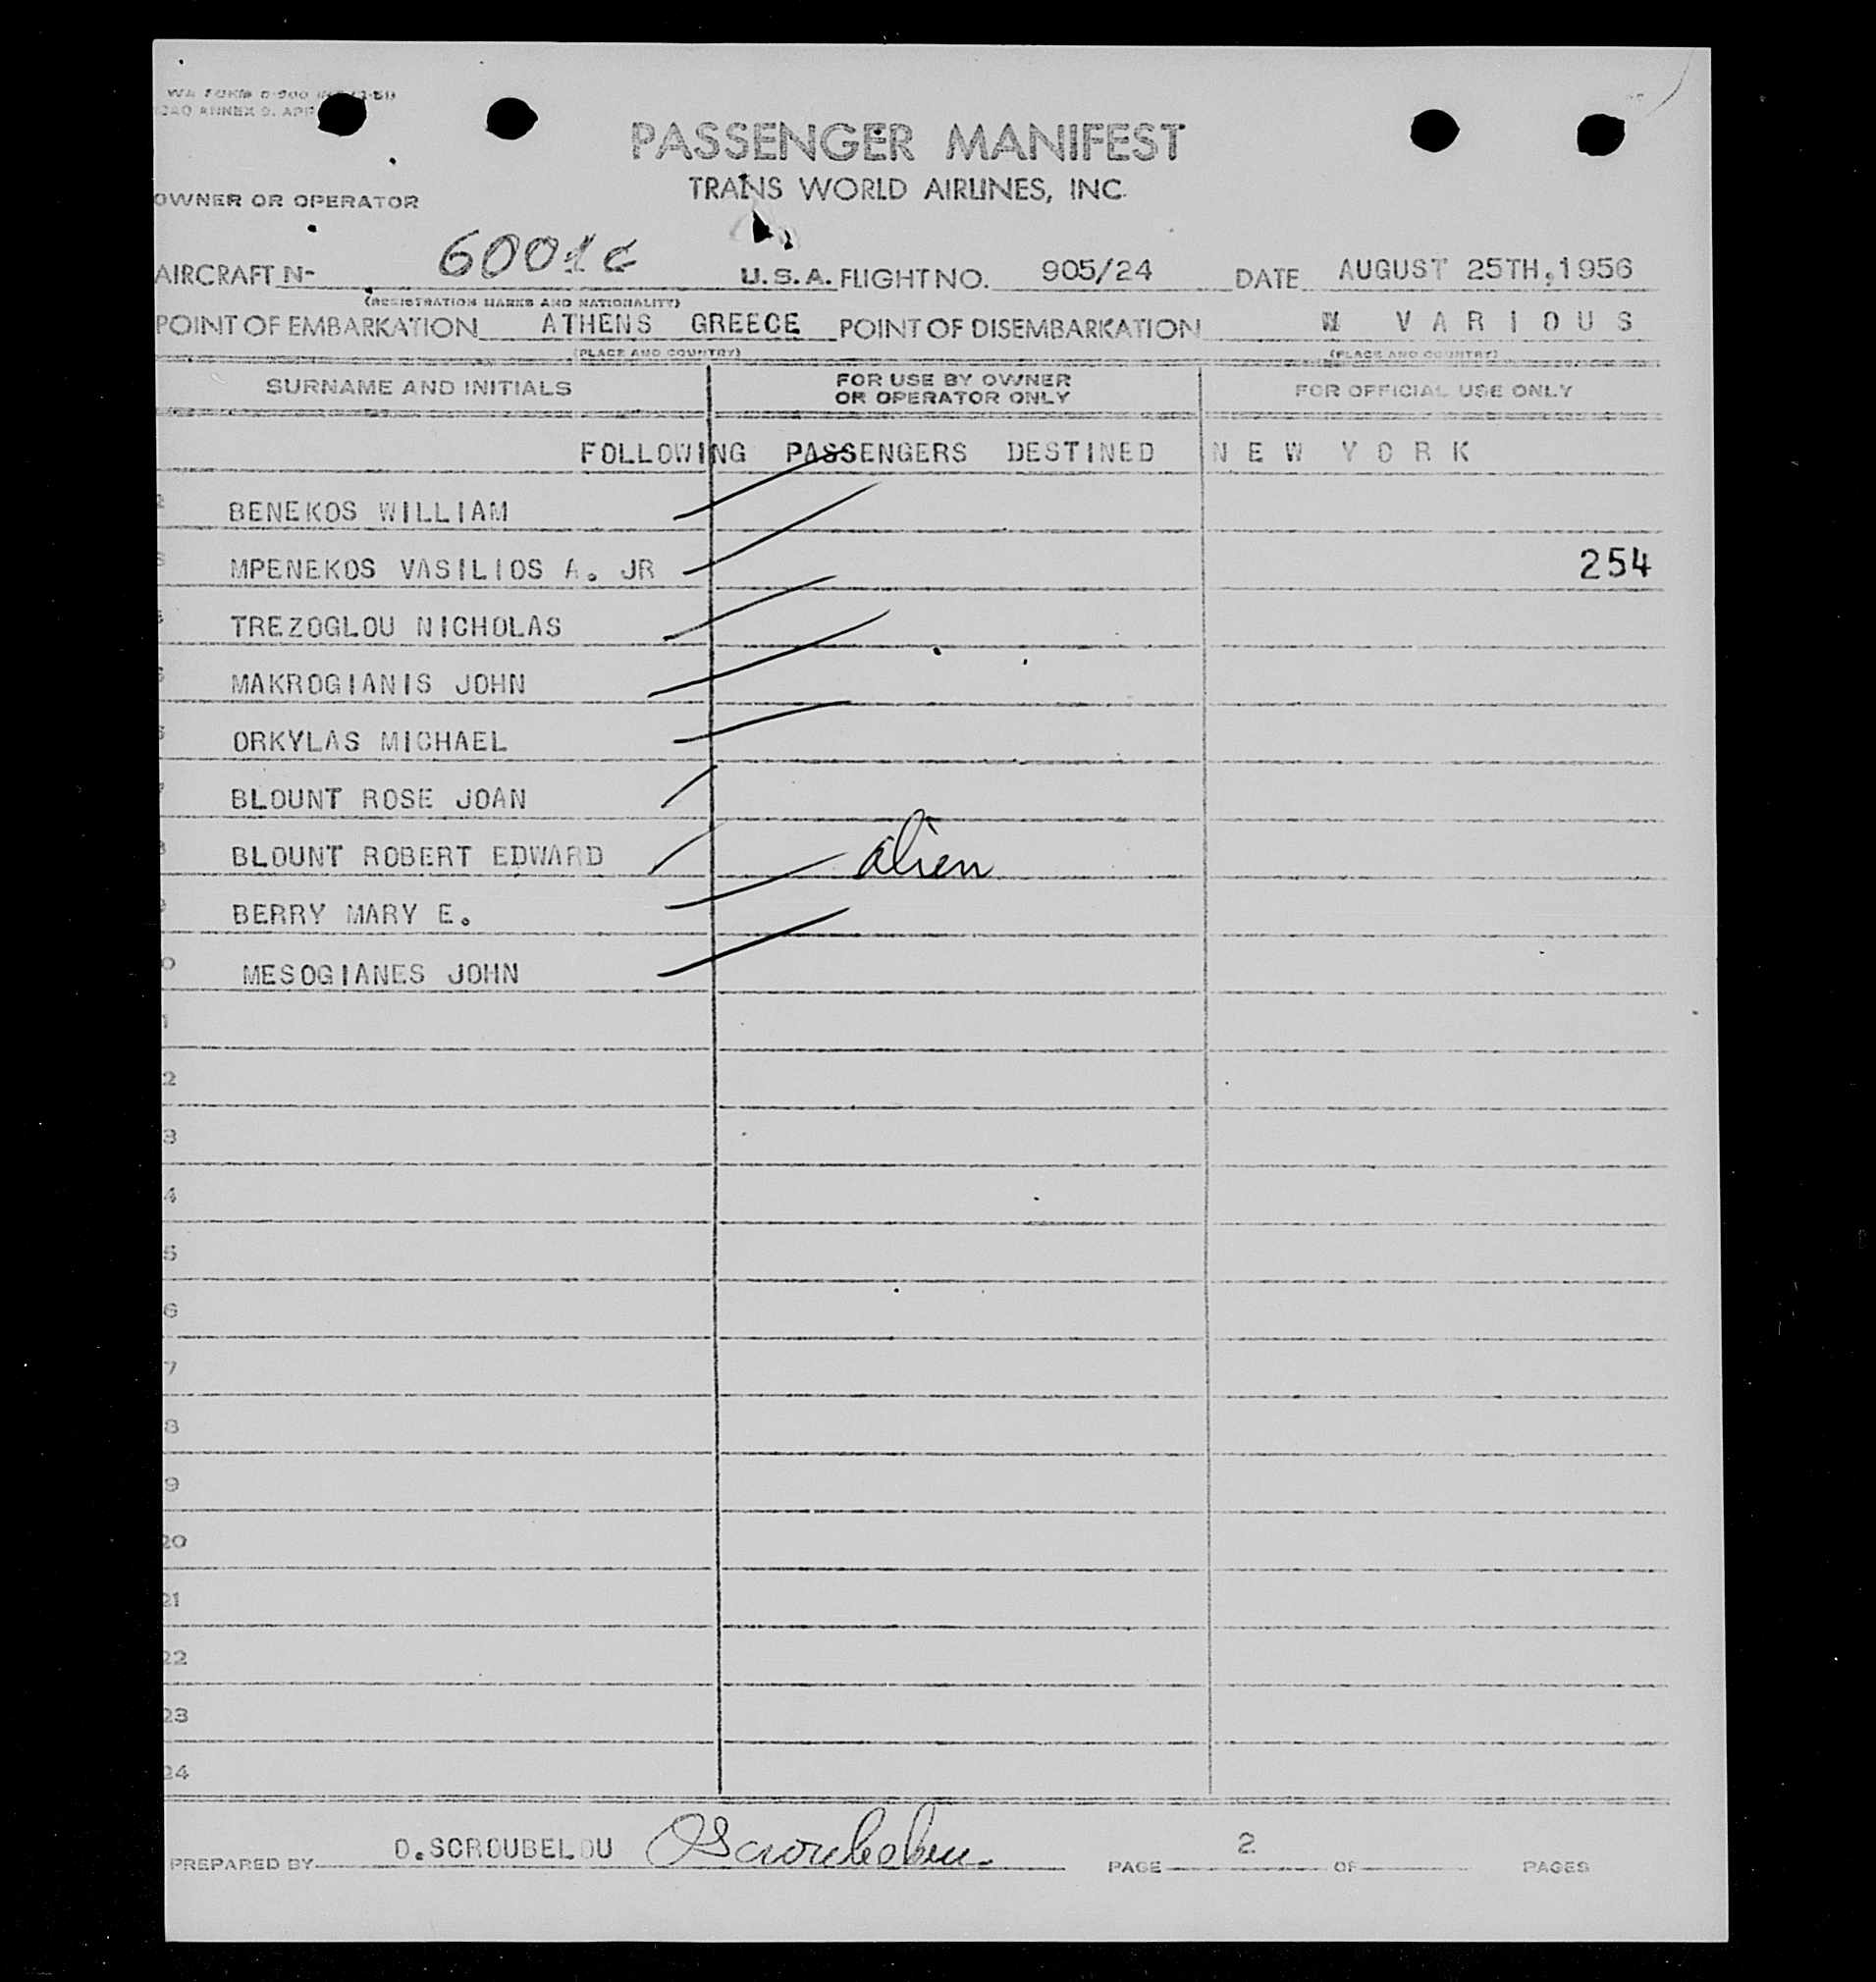 PASSENGER MANIFEST
TRANS WORLD AIRLINES, INC.
OWNER OR OPERATOR
AIRCRAFT N- U.S.A. FLIGHT NO. 905/24 DATE AUGUST 25TH,1956
(REGISTRATION MARKS AND NATIONALITY)
POINT OF EMBARKATION ATHENS GREECE POINT OF DISEMBARKATION VARIOUS
(PLACE AND COUNTRY) (PLACE AND COUNTRY)
SURNAME AND INITIALS FOR USE BY OWNER OR OPERATOR ONLY FOR OFFICIAL USE ONLY
FOLLOWING PASSENGERS DESTINED NEW YORK
2 BENEKOS WILLIAM
MPENEKOS VASILIOS A. JR 254
TREZOGLOU NICHOLAS
MAKROGIANIS JOHN
ORKYLAS MICHAEL
BLOUNT ROSE JOAN
BLOUNT ROBERT EDWARD alien
BERRY MARY E.
0 MESOGIANES JOHN
1
2
3
4
5
6
7
8
9
20
21
22
23
24
PREPARED BY D.SCROUBELOU PAGE 2 OF PAGES